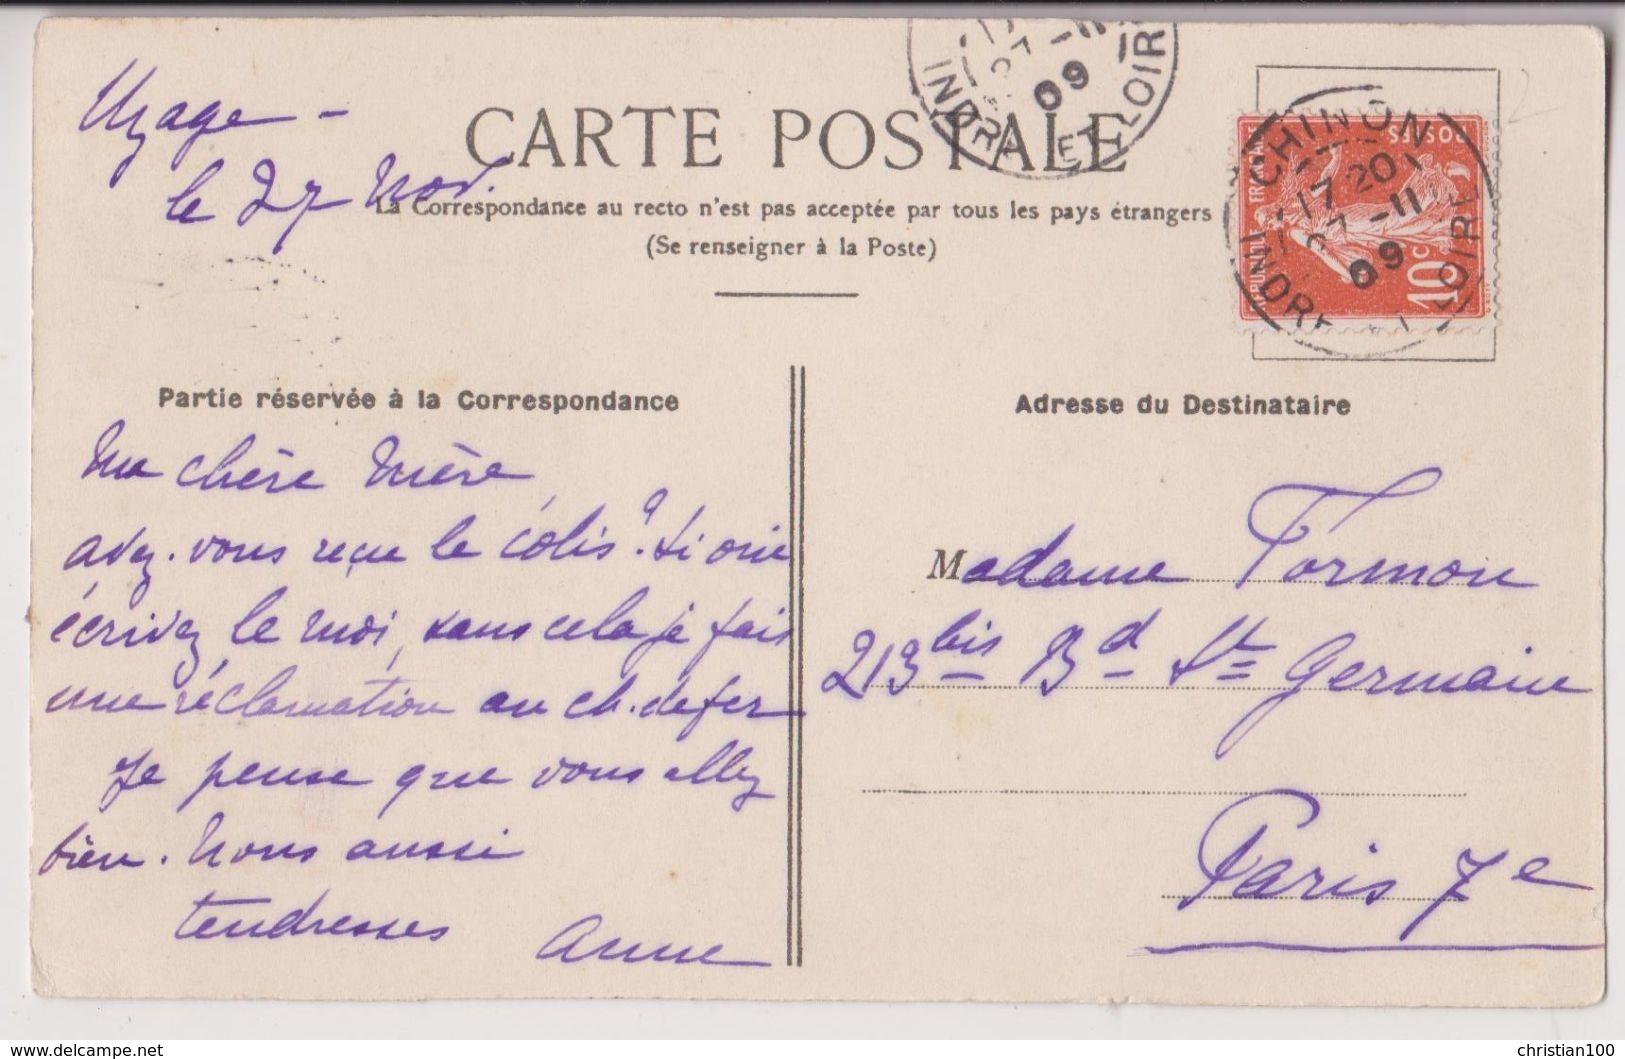 Uzage -
le 27 Nov.
CARTE POSTALE
La Correspondance au recto n'est pas acceptée par tous les pays étrangers
(Se renseigner à la Poste)
INDRE ET LOIRE
-11
09
CHINON
17 20
27 -11
09
INDRE ET LOIRE
POSTES
10c
Partie réservée à la Correspondance
Ma chère Mère,
avez-vous reçu le colis? Si oui
écrivez le moi, sans cela je fais
une réclamation au ch. de fer
Je pense que vous allez
bien. Nous aussi
tendresses
Anne
Adresse du Destinataire
Madame Formon
213 bis Bd St Germain
Paris 7e
www.delcampe.net
christian100